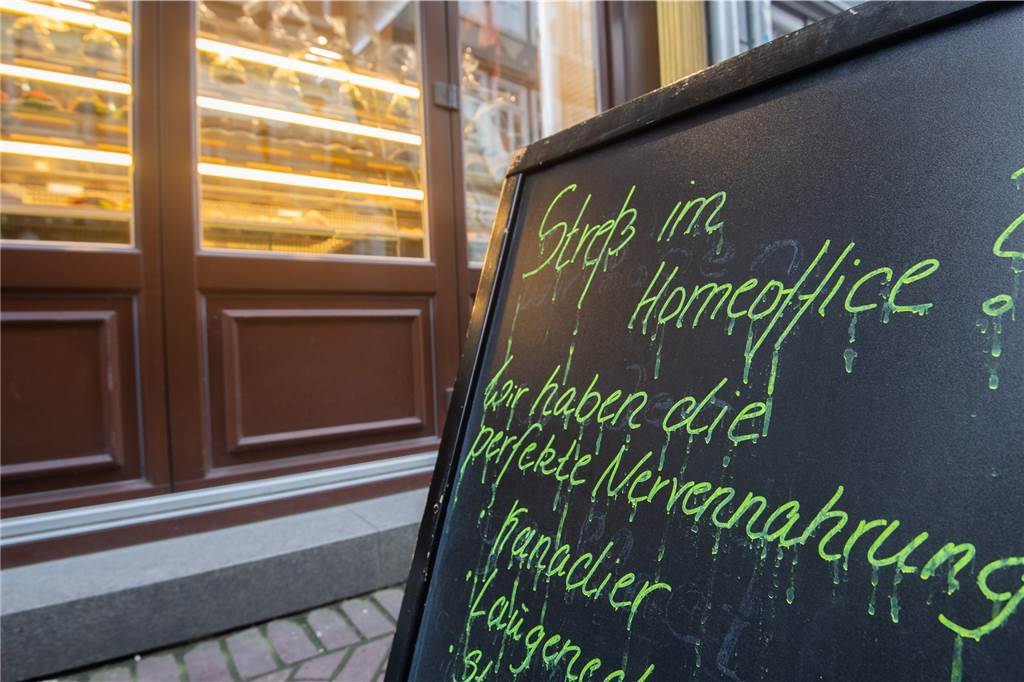 Streß im
Homeoffice
Wir haben die
perfekte Nervennahrung
· Kanadier